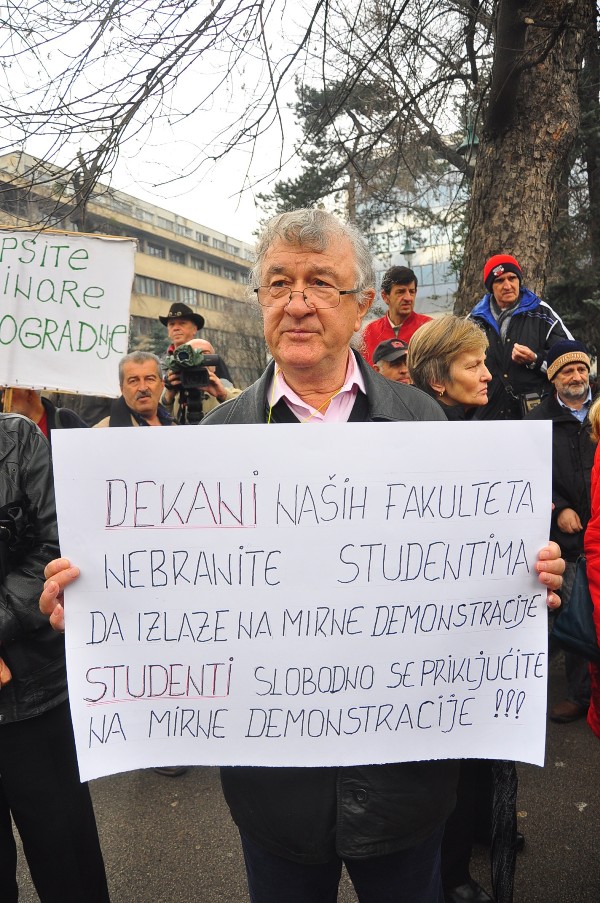 PŠITE
INARE
OGRADNJE
DEKANI NAŠIH FAKULTETA
NEBRANITE STUDENTIMA
DA IZLAZE NA MIRNE DEMONSTRACIJE
STUDENTI SLOBODNO SE PRIKLJUĆITE
NA MIRNE DEMONSTRACIJE !!!